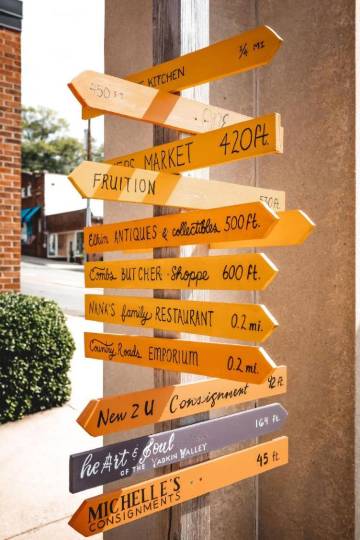 KITCHEN ¾ MI
450
MARKET 420ft.
FRUITION
Elkin ANTIQUES & collectibles 500 FT.
Combs BUTCHER Shoppe 600 ft.
NANA'S family RESTAURANT 0.2 mi.
Country Roads EMPORIUM 0.2 mi.
New 2 U Consignment 92 ft.
heArt & Soul 164 ft.
OF THE YADKIN VALLEY
MICHELLE'S 45 ft.
CONSIGNMENTS